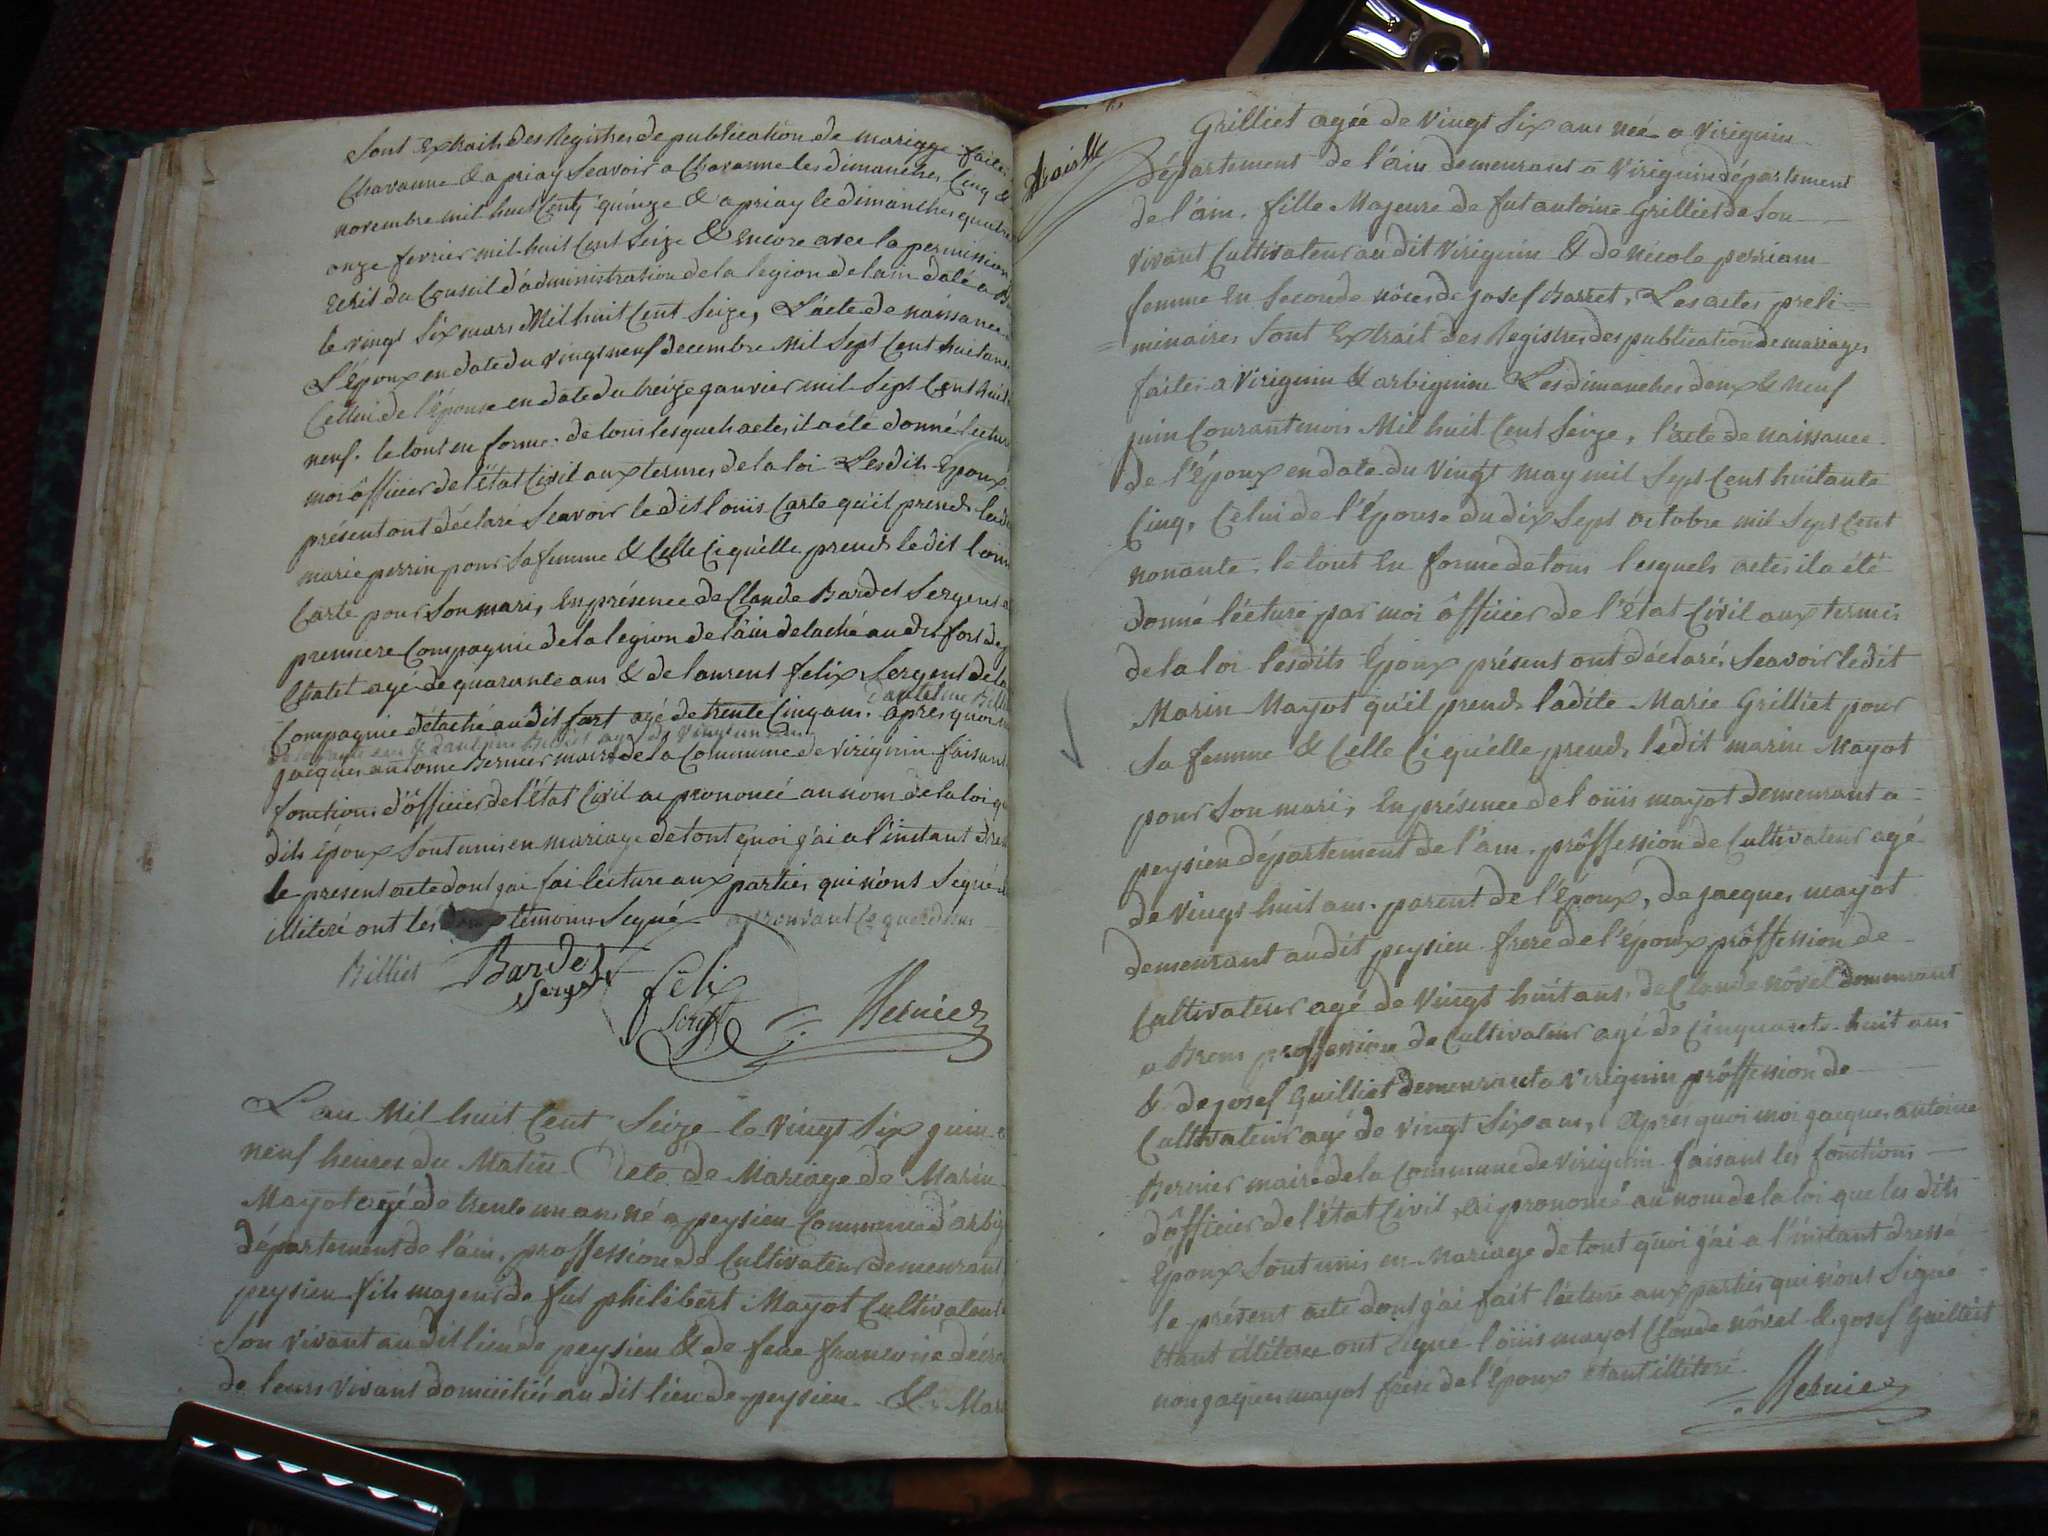 Sont Extraits des Registres de publication de mariage faites
Chavanne & a priay Seavoir a Chavanne les dimanches Cinq &
novembre mil huit Cents quinze & a priay le dimanches quatre
onze fevrier mil huit Cent Seize & Encore avec la permission
Ecrit du Conseil d'administration de la legion de lain daté a
le vingt Six mars Mil huit Cent Seize, L'acte de naissance
L'Époux en date du vingt neuf decembre Mil Sept Cent huitante
Cellui de l'épouse en date du treize janvier mil Sept Cent huit
neuf. le tout en forme. de tous lesquels actes il a été donné lecture
moi ôfficier de l'État Civil aux termes de la loi Lesdits Epoux
présent ont déclaré Seavoir le dit loüis Carte qu'il prend lad
marie perrin pour Sa femme & Celle Ci qu'elle prend ledit loui
Carte pour Son mari, En présence de Claude Bardet Sergent
premiere Compagnie de la legion de l'ain detaché au dit fort de
Chatet agé de quarante ans & de laurent felix Sergent de la
Compagnie détaché au dit fort agé de trente Cinq ans. apres quoi
jacques antoine Bernier maire de la Commune de virignin faisant
fonctions d'ôfficier de l'État Civil ai prononcé au nom de la loi q
dits époux Sont unis en mariage de tout quoi j'ai a l'instant dres
le present acte dont jai fai lécture aux parties qui n'ont Segné
illiteré ont les temoins Segné approuvant
Billiet Bardet Sergt felix Sergt Bernier
L'an Mil huit Cent Seize le vingt Six juin
neuf heures du Matin Acte de Mariage de Marin
Mayot agé de trente un ans né a peysieu Commune d'arbig
département de l'ain, proffession de Cultivateur demeurant
peysieu fils majeur de fut philibert Mayot Cultivateur
Son vivant au dit lieu de peysieu & de feue francoise
de leurs vivant domiciliés au dit lieu de peysieu. & Mari
Grilliet agée de vingt Six ans née a virignin
département de l'ain demeurant a virignin département
de l'ain. fille Majeure de fut antoine Grilliet de Son
vivant Cultivateur au dit virignin & de nicole perriam
femme En Seconde nôces de josef Barret, Les actes preli=
=minaires Sont Extrait des Registres des publication de mariages
faites a virignin & arbignieu Les dimanches deux & neuf
juin Courant mois Mil huit Cent Seize, l'acte de naissance
de l'Époux en date du vingt may mil Sept Cent huitante
Cinq, Celui de l'Épouse du dix Sept octobre mil Sept Cent
nonante. le tout En forme de tous lesquels actes il a été
donné lécture par moi ôfficier de l'État Civil aux termes
de la loi lesdits Époux présent ont déclaré, Seavoir ledit
Marin Mayot qu'il prend ladite Marie Grilliet pour
Sa femme & Celle Ci qu'elle prend ledit marin Mayot
pour Son mari, En présence de loüis mayot demeurant a
peysieu département de l'ain. prôffession de Cultivateur agé
de vingt huit ans. parent de l'Époux, de jacques mayot
demeurant au dit peysieu frere de l'époux prôffession de
Cultivateur agé de vingt huit ans. de Claude nôvel demeurant
a Brens proffession de Cultivateur agé de Cinquante huit ans
& de josef Guilliet demeurant a virignin prôffession de
Cultivateur agé de vingt Six ans, Apres quoi moi jacques antoine
Bernier maire de la Commune de virignin faisant les fonctions
d'ôfficier de l'état Civil, ai prononcé au nom de la loi que les dits
Epoux Sont unis en mariage de tout quoi j'ai a l'instant dressé
le présent acte dont j'ai fait lécture aux parties qui n'ont Signé
étant illiteré ont Signé loüis mayot Claude nôvel & josef Guilliet
non jaques mayot frere de l'Epoux étant illiteré
Bernier